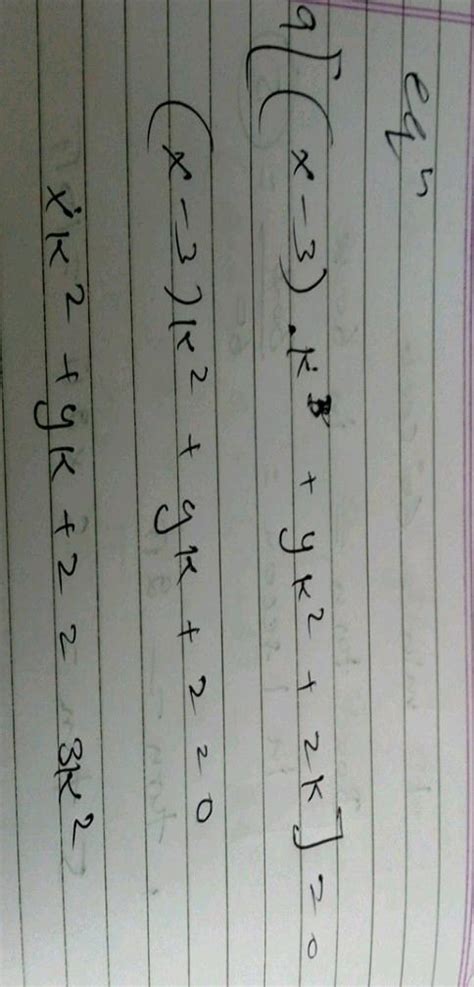 eqⁿ
a[(x-3).k³ + yk² + zk] = 0
(x-3)k² + yk + z = 0
xk² + yk + z = 3k²